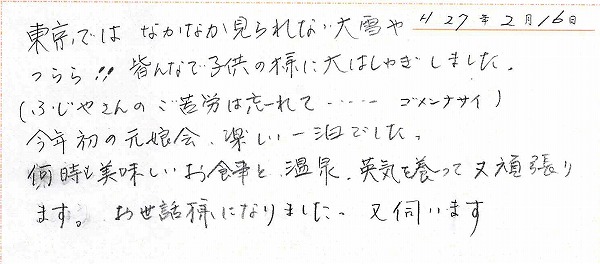 H27年2月16日
東京では なかなか見られない大雪や
つらら!! 皆んなで子供の様に大はしゃぎしました。
(ふじやさんのご苦労は忘れて・・・・・ ゴメンナサイ)
今年初の元娘会、楽しい一泊でした。
何時も美味しいお食事と、温泉、英気を養って又頑張り
ます。 お世話様になりました。 又伺います